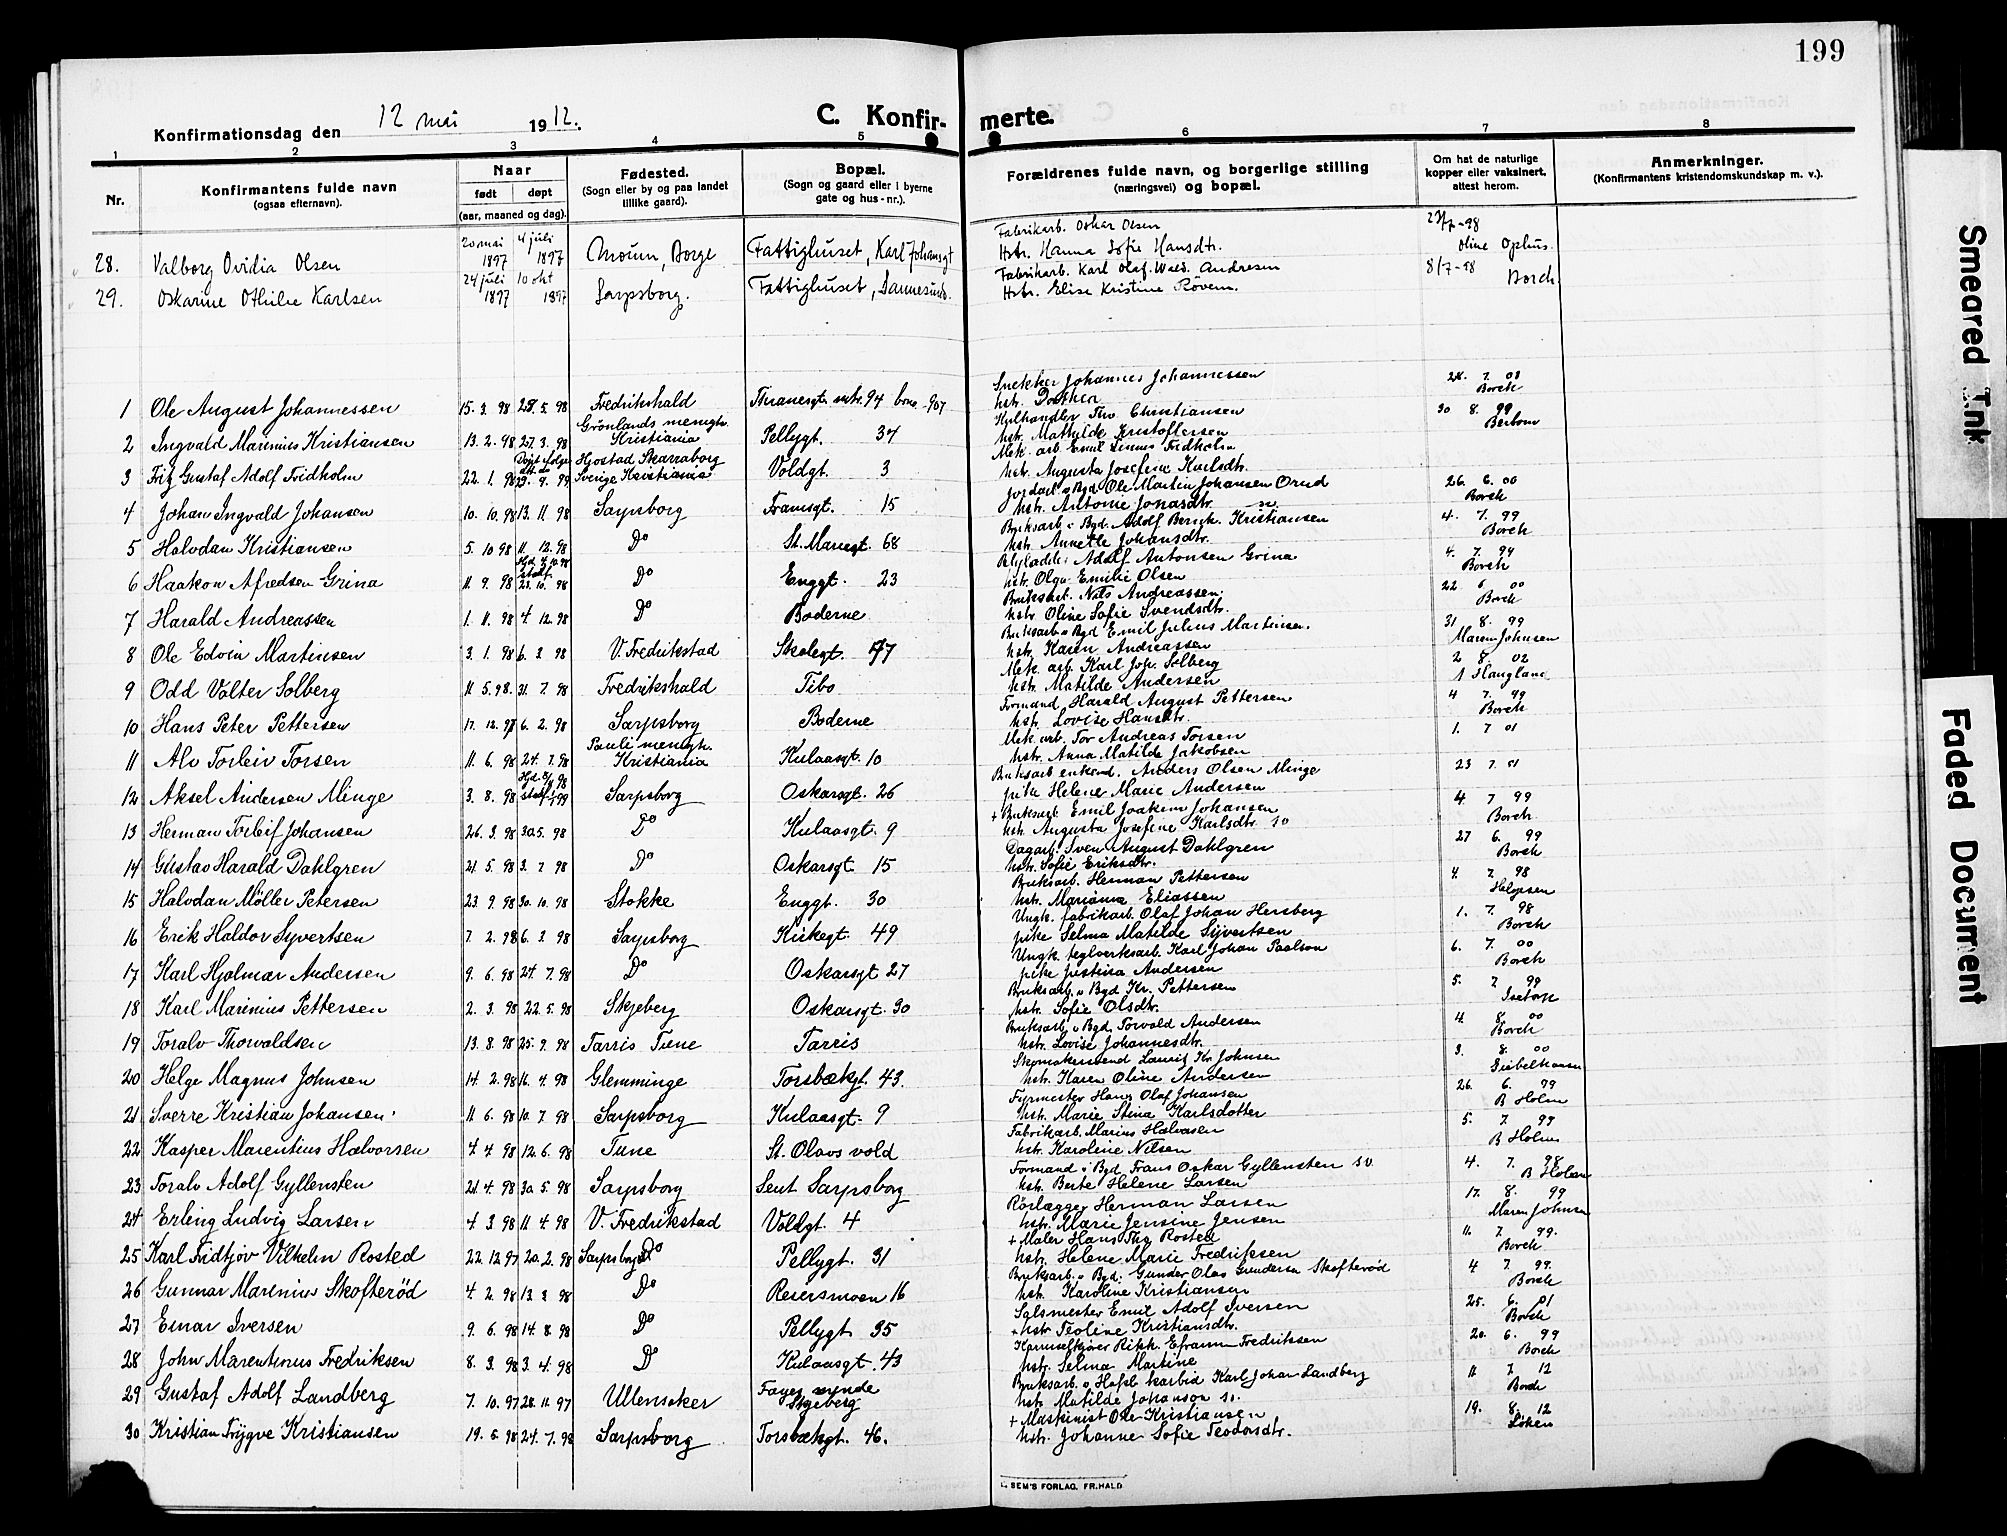 199
Konfirmationsdag den 12 mai 1912.
C. Konfirmerte.
1 2 3 4 5 6 7 8
Nr.
Konfirmantens fulde navn (ogsaa efternavn).
Naar
født døpt
(aar, maaned og dag).
Fødested. (Sogn eller by og paa landet tillike gaard).
Bopæl. (Sogn og gaard eller i byerne gate og hus-nr.).
Forældrenes fulde navn, og borgerlige stilling (næringsvei) og bopæl.
Om hat de naturlige kopper eller vaksinert, attest herom.
Anmerkninger. (Konfirmantens kristendomskundskap m. v.).
28. Valborg Ovidia Olsen 20 mai 1897 4 juli 1897 Moum, Borge Fattighuset, Karl Johansgt Fabrikarb. Oskar Olsen
Hstr. Hanna Sofie Hansdtr. Oline Ophus.
29. Oskarine Othilie Karlsen 24 juli 1897 10 okt 1897 Sarpsborg. Fattighuset, Sannesund. Fabrikarb. Karl Olaf Wald. Andresen 8/7-98
Hstr. Elise Kristine Røvem. Borch
1 Ole August Johannessen 15. 3. 98 28. 5. 98 Fredrikshald Snekker Johannes Johannessen
hstr. Dorthea Borch
2 Ingvald Marinius Kristiansen 13. 2. 98 27. 3. 98 Grönlands menigh. Kristiania Pellygt. 34 Kulhandler Thv. Christiansen 30 8. 99
hstr. Mathilde Kristoffersen
3 Fritz Gustaf Adolf Fridholm 22. 1. 98 Sverige Kristiania Voldgt. 3 Mek. arb. Emil Linus Fridholm
hstr. Augusta Josefine Karlsdtr.
4 Johan Ingvald Johansen 10. 10. 98 13. 11. 98 Sarpsborg Framsgt. 15 Jordarb. v Bgd Ole Martin Johansen Orud 26. 6. 00
hstr. Antonie Jonasdtr. Borch
5 Halvdan Kristiansen 5. 10 98 11. 12. 98 Do St. Mariegt. 68 Bruksarb v Bgd. Adolf Bernh. Kristiansen 4. 7. 99
hstr. Annette Johansdtr. Borch
6 Haakon Afredsen Grina 11. 9. 98 23. 10. 98 Do Enggt. 23 Adolf Antonsen Grina 4. 7. 99
hstr. Olga Emilie Olsen Borch
7 Harald Andreassen 1. 11. 98 4. 12. 98 Do Boderne Bruksarb. Nils Andreassen. 22 6. 00
hstr. Oline Sofie Svendsdtr. Borch
8 Ole Edvin Martinsen 3. 1. 98 6. 3. 98 V. Fredrikstad Skolegt. 47 Bruksarb v Bgd Emil Julius Martinsen. 31 8. 99
hstr. Karen Andreassen Maren Johnsen
9 Odd Valter Solberg 11. 5. 98. 31. 7. 98 Fredrikshald Tibo Mek. arb. Karl Joh. Solberg 2 8. 02
hstr. Matilde Andersen
10 Hans Peter Pettersen 17. 12. 97 6. 2. 98 Sarpsborg Boderne Formand Harald August Pettersen 4 7. 99
hstr. Lovise Hansdtr. Borch
11 Alv Torleiv Torsen 11. 6. 98 24. 7. 98 Pauli menigh. Kristiania Kulaasgt. 10 Mek. arb. Tor Andreas Torsen 1. 7 01
hstr. Anna Matilde Jakobsen
12 Aksel Andersen Minge 3. 8. 98 Sarpsborg Oskarsgt. 26 Bruksarb enkem. Anders Olsen Minge 23 7. 01
pike Helene Marie Andersen
13 Herman Torleif Johansen 26. 3. 98 30. 5. 98 Do Kulaasgt. 9 + Bruksarb. Emil Joakim Johansen 4. 7 99
hstr. Augusta Josefine Karlsdtr. Borch
14 Gustav Harald Dahlgren 21. 5. 98 3. 7. 98 Do Oskarsgt. 15 Dagarb. Sven August Dahlgren 27 6. 99
hstr. Sofie Eriksdtr. Borch
15 Halvdan Möller Petersen 23. 9. 98 30. 10. 98 Stokke Enggt. 30 Bruksarb. Herman Pettersen 4. 7. 98
hstr. Mariana Eliassen Helgesen
16 Erik Haldor Syvertsen 7. 2. 98 6. 3. 98 Sarpsborg Kirkegt. 49 Ungk. fabrikarb. Olaf Johan Hersberg 1. 7. 98
pike Selma Matilde Syvertsen Borch
17 Karl Hjalmar Andersen 9. 6. 98 24. 7. 98 Do Oskarsgt 27 Ungk. teglverksarb. Karl Johan Paulson 6. 7. 00
pike Justina Andersen Borch
18 Karl Marinius Pettersen 2. 3. 98 22. 5. 98 Skjeberg Oskarsgt. 30 Bruksarb. v Bgd Kr. Pettersen 5. 7. 99
hstr. Sofie Olsdtr. Isetorp
19 Toralv Thorvaldsen 13. 8. 98 25. 9. 98 Tarris Tune Tarris Bruksarb v Bgd. Torvald Andersen 4. 8. 00
hstr. Lovise Johannesdtr. Borch
20 Helge Magnus Johnsen 14. 2. 98 16. 4. 98 Glemminge Torsbækgt. 43. Skomakersvend Lauritz Kr. Johnsen 3. 8. 00
hstr. Karen Oline Andersen
21 Sverre Kristian Johansen 11. 6. 98 10. 7. 98 Sarpsborg Kulaasgt. 9 Fyrmester Hans Olaf Johansen 26. 6. 99
hstr. Marie Stina Karlsdotter B Holm
22 Kasper Marentius Halvorsen 4. 4 98 12. 6. 98 Tune St. Olavs vold Fabrikarb. Marius Halvorsen 5. 7. 99
hstr. Karoline Nilsen B Holm
23 Toralv Adolf Gyllensten 21. 4. 98 30. 5. 98 Sarpsborg Sent Sarpsborg Formand v Bgd Frans Oskar Gyllensten 4. 7. 98
hstr. Berte Helene Larsen B Holm
24 Erling Ludvig Larsen 4 3 98 11. 4 98 V. Fredrikstad Voldgt. 4 Rörlægger Herman Larsen 17. 8. 99
hstr. Marie Jensine Jensen Maren Johnsen
25 Karl Fridtjov Vilhelm Rosted 22. 12 97 20. 2. 98 Sarpsborg Do Pellygt. 31 + Maler Hans Thv Rosted 11. 7. 99.
hstr. Helene Marie Fredriksen Borch
26 Gunnar Marinius Skofteröd 4. 2. 98 13. 3 98 Do Reiersmoen 16 Bruksarb. v Bgd. Gunder Olav Gundersen Skofteröd 4 7. 99.
hstr. Karoline Kristiansen Borch
27 Einar Iversen 9. 6. 98 14. 8. 98 Do Pellygt 35 Salsmester Emil Adolf Iversen 25. 6. 01
+ hstr Teoline Kristiansdtr. Borch
28 John Marentinus Fredriksen 8. 3. 98 3. 4. 98 Do Kulaasgt. 43 Efraim Fredriksen 20. 6. 99
hstr. Selma Martine Borch
29 Gustaf Adolf Landberg 7. 10. 97 28. 11. 97 Ullensaker Skjeberg Bruksarb. v Hafsl. karbid Karl Johan Landberg 11 7 12
hstr. Matilde Johanson Borch
30 Kristian Trygve Kristiansen 19. 6. 98 24. 7. 98 Sarpsborg Torsbækgt. 46. + Maskinist Ole Kristiansen 19. 8. 12
hstr. Johanne Sofie Teodorsdtr. Löken
SEM'S FORLAG, FR.HALD
Smeared Ink
Faded Document